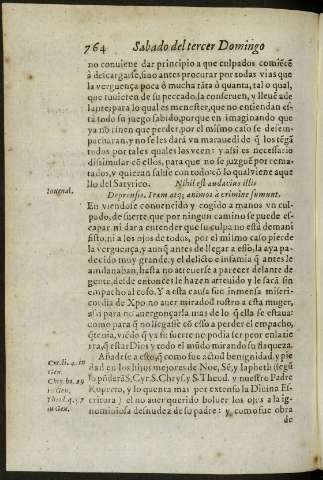 764 Sabado del tercer Domingo
no conuiene dar principio a que culpados comiẽcẽ
à descargarse, sino antes procurar por todas vias que
la verguença poca ô mucha tãta ò quanta, tal o qual,
que tuuieren de su peccado, la conseruen, y lleuẽ ade
lante; para lo qual es menester, que no entiendan es-
ta todo su juego sabido, porque en imaginando que
ya no tienen que perder, por el mismo caso se desem-
pacharan, y no se les darà vn marauedi de q̃ los tẽgã
todos por tales quales los veen: y assi es necessario
dissimular cõ ellos, para que no se juzguẽ por rema-
tados, y quieran salirse con todo: cõ lo qual viene aque
llo del Satyrico. Nihil est audacius illis
Iuuenal.
Deprensis. Iram atq; animos à crimine sumunt.
En viendose conuencido y cogido à manos vn cul-
pado, de suerte, que por ningun camino se puede es-
capar, ni dar a entender que su culpa no està demani
fisto, ni a los ojos de todos, por el mismo caso pierde
la verguença, y aunq̃ antes de llegar a ello, la aya pa-
decido muy grande, y el delicto e infamia q̃ antes le
amilanaban, hasta no atreuerse a parecer delante de
gente, desde entonces le hazen atreuido y le sacã sin
empacho al coso. Y a esta causa fue inmensa miseri-
cordia de Xpo. no auer mirado ↄl rostro a esta muger,
assi para no auergonçarla mas de lo q̃ ella se estaua:
como para q̃ no llegasse cõ esso a perder el empacho,
q̃ tenia, viẽdo q̃ ya su suerte no podia ser peor en la tie
rra, q̃ estar Dios y todo el mũdo mirando su flaqueza.
Añadese a esto, q̃ como fue actoↄ̃ benignidad, y pie
dad en los hijos mejores de Noe, Sẽ, y Iapheth (segũ
Cyr. li. 4. in
Gen.
lo põderã S. Cyr. S. Chrys. y S. Theod. y nuestro Padre
Chry. ho. 29
in Gen.
Ruperto, y lo quenta mas por extenso la Diuina Es-
Theod. q. 57
in Gen.
critura) el no auer querido boluer los ojos a la ig-
nominiosa desnudez de su padre: y como fue obra
de